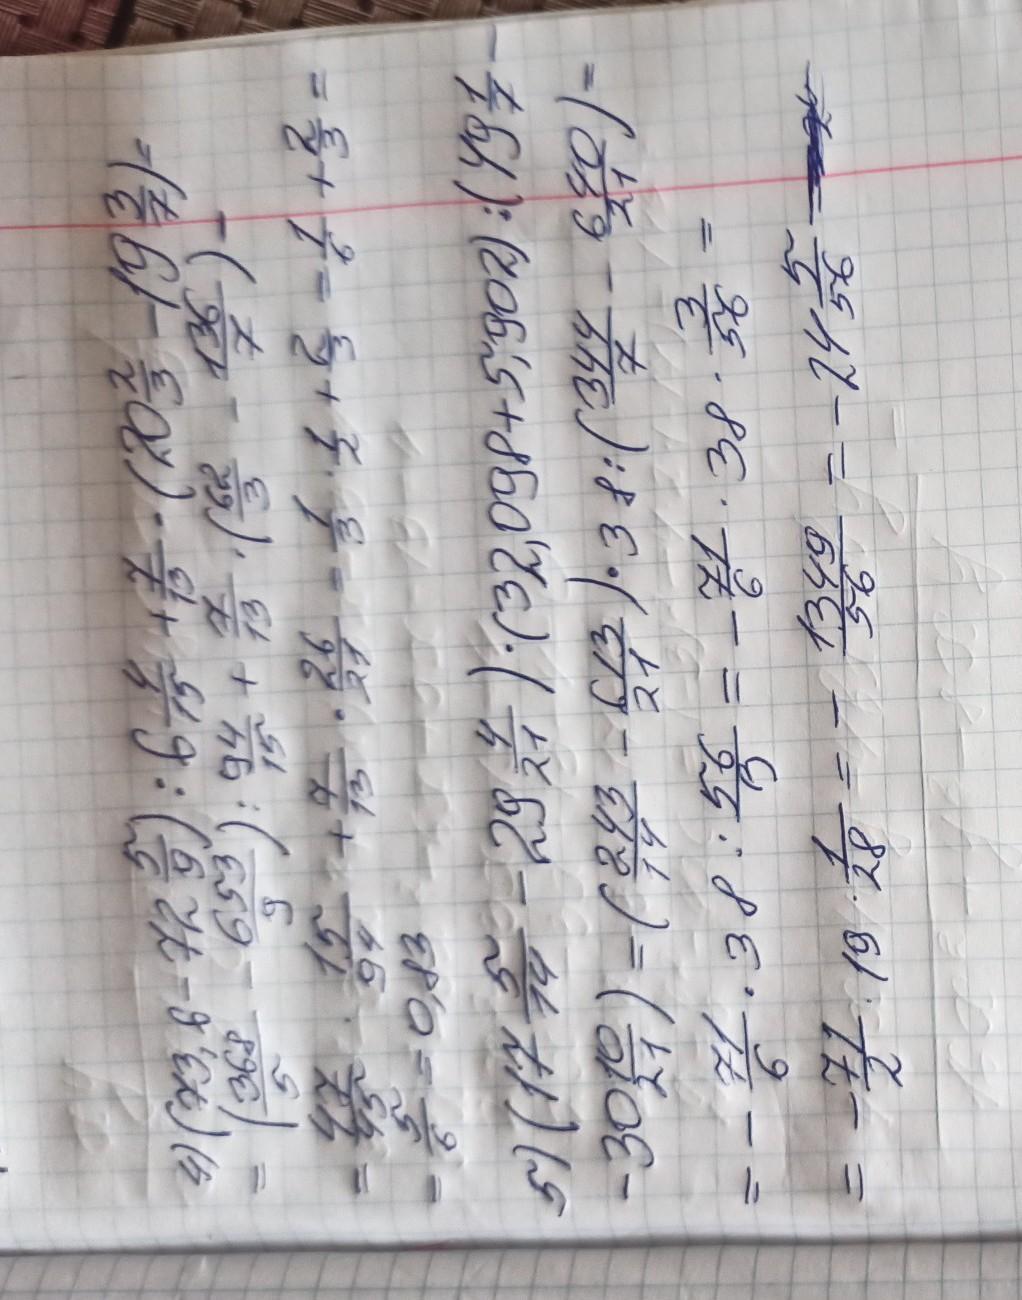 4) (73,6 - 72 5/9) : 6 4/15 + 7/13 · (20 2/3 - 19 3/7) =
= (368/5 - 653/9) : 94/15 + 7/13 · (62/3 - 136/7) -
= 47/45 · 15/94 + 7/13 · 26/21 = 1/3 · 1/2 + 2/3 = 1/6 + 2/3 =
= 5/6 = 0,83
5) (17 5/14 - 29 4/21) · (32,098 + 5,902) : (49 1/7 -
- 30 10/21) = (243/14 - 613/21) · 38 : (344/7 - 640/21) =
= - 71/6 · 38 : 56/3 = - 71/6 · 38 · 3/56 =
= - 71/2 · 19 · 1/28 = - 1349/56 = - 24 5/56